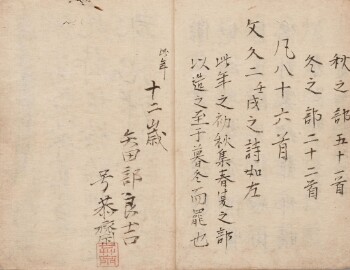 秋之部五十一首
冬之部二十二首
凡八十六首
文久二壬戌之詩如左
此年之初秋集春夏之部
以造之至于暮冬而罷也
此年
十二歳
矢田部良吉
号恭齋